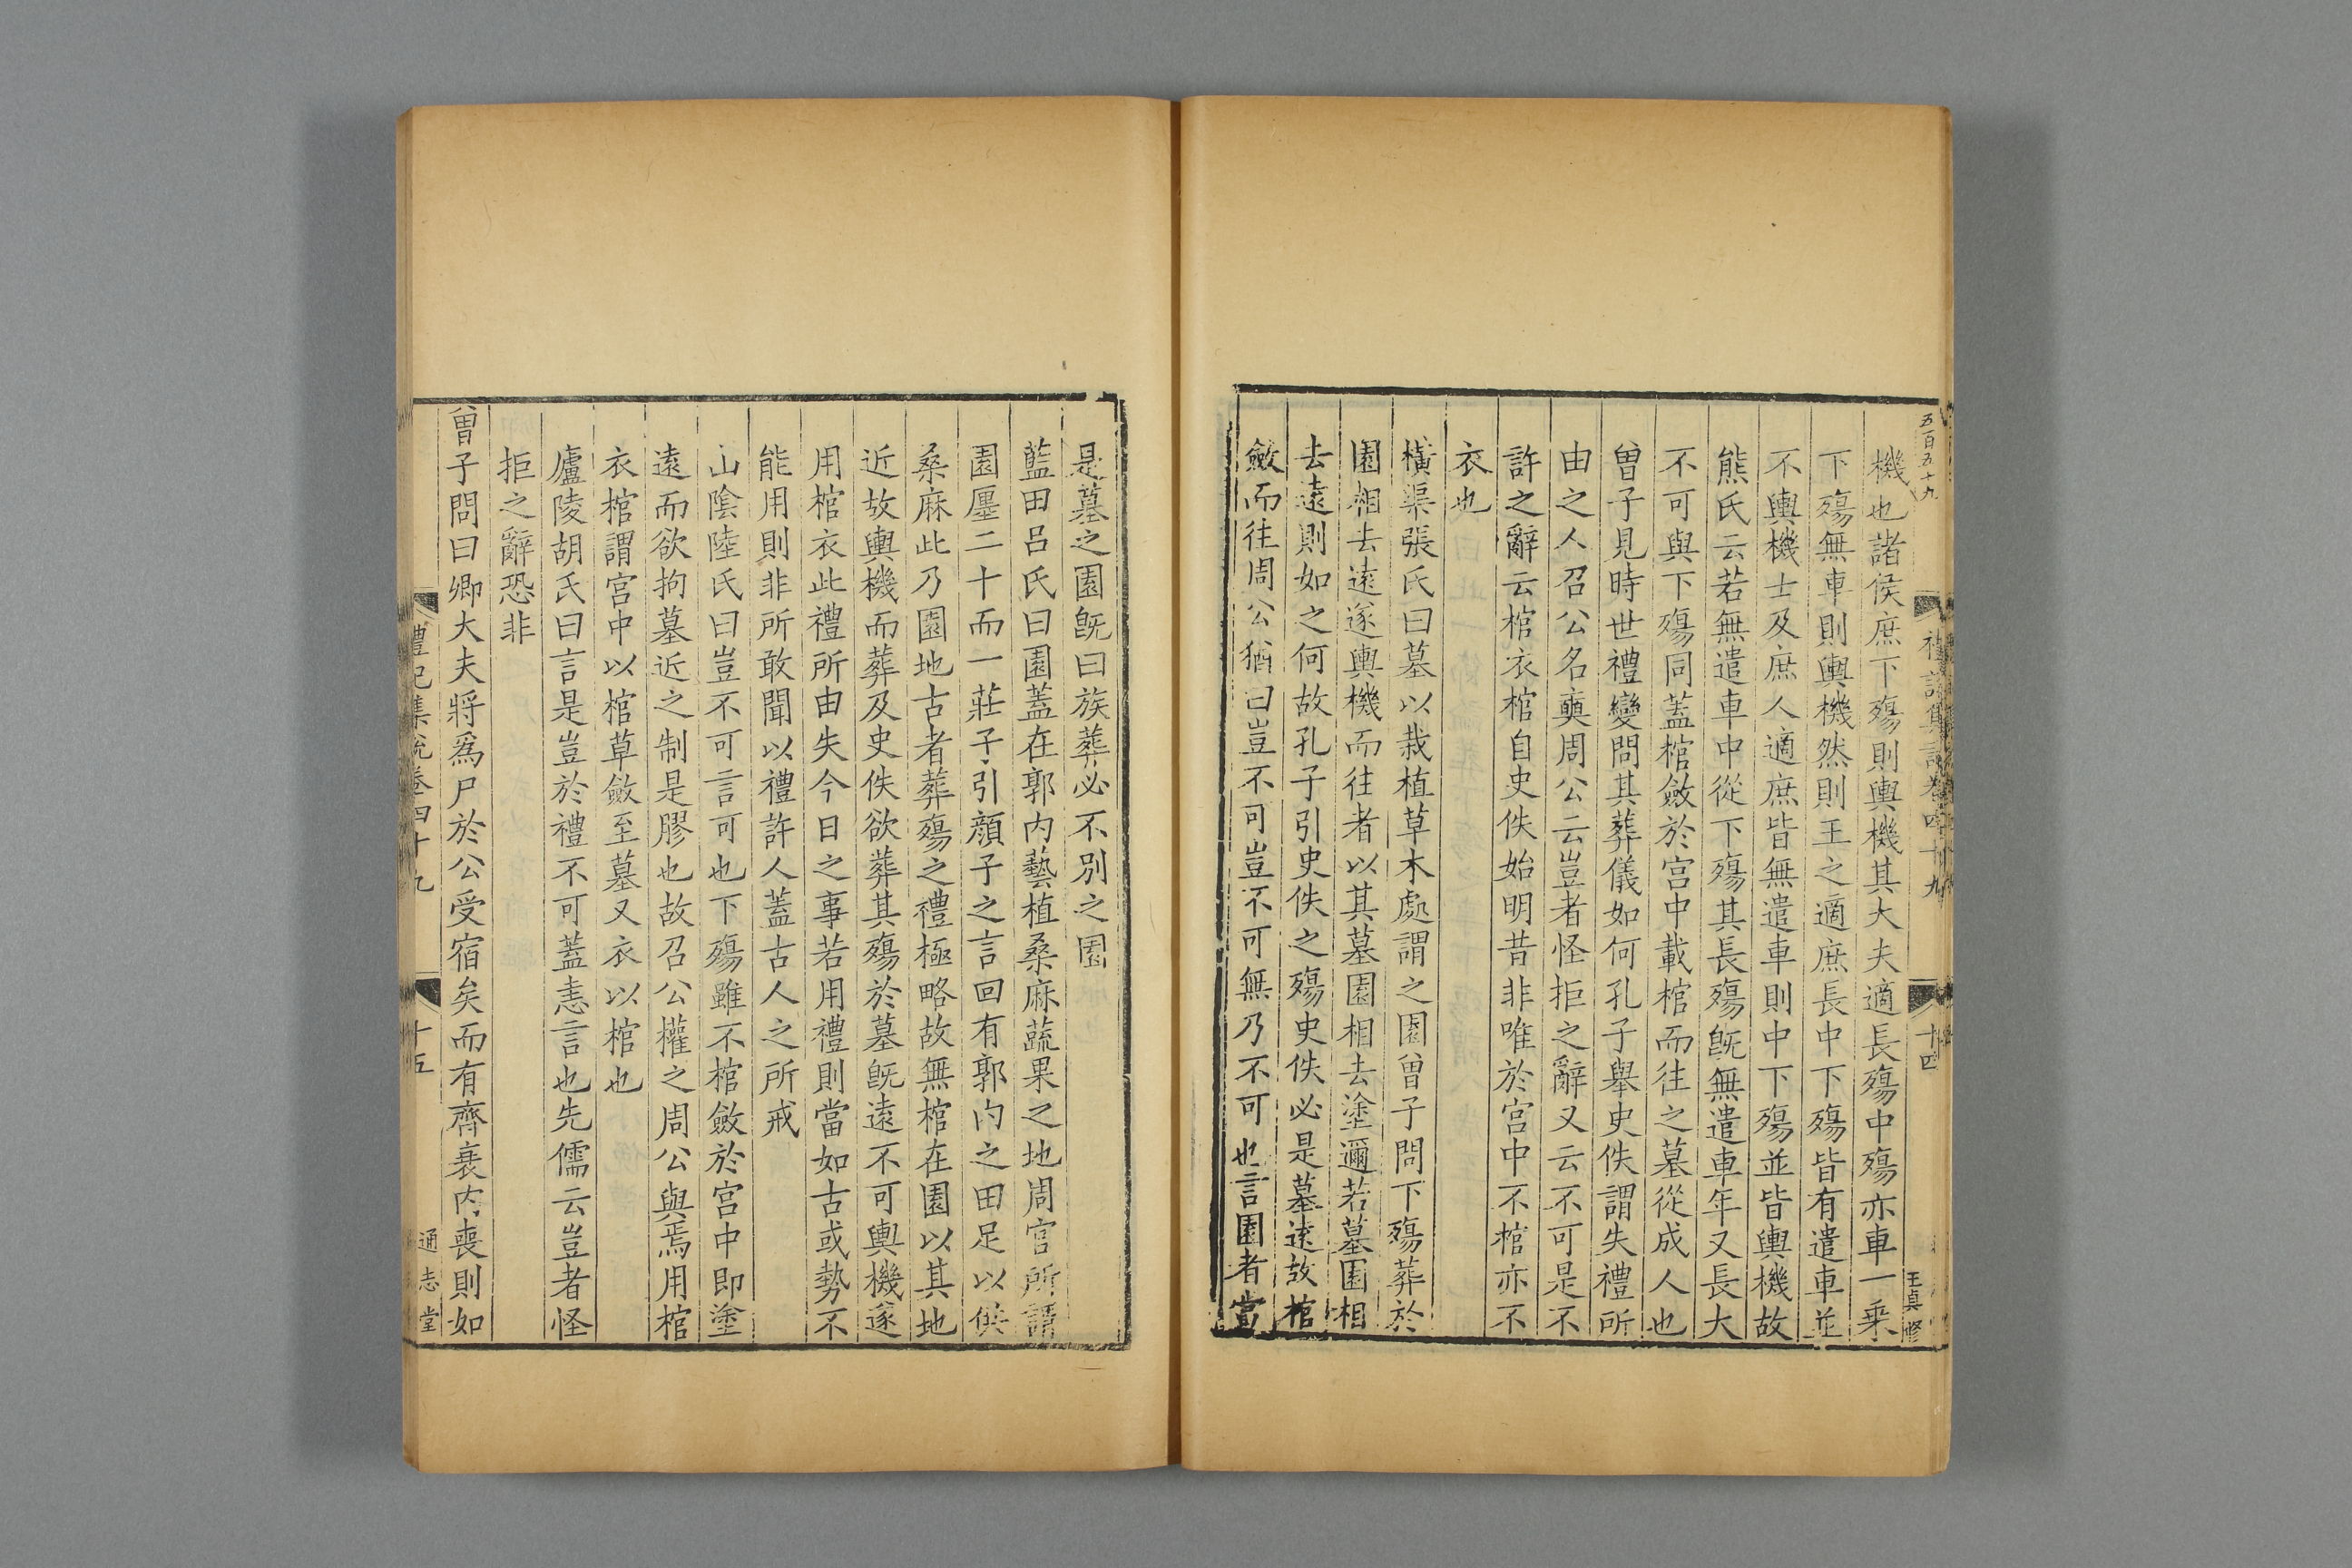 五百五十九
禮記集說卷四十九
十四
王貞修
機也諸侯庶下殤則輿機其大夫適長殤中殤亦車一乗
下殤無車則輿機然則王之適庶長中下殤皆有遣車並
不輿機士及庶人適庶皆無遣車則中下殤並皆輿機故
熊氏云若無遣車中從下殤其長殤旣無遣車年又長大
不可與下殤同蓋棺斂於宮中載棺而往之墓從成人也
曾子見時世禮變問其葬儀如何孔子舉史佚謂失禮所
由之人召公名奭周公云豈者怪拒之辭又云不可是不
許之辭云棺衣棺自史佚始明昔非唯於宮中不棺亦不
衣也
橫渠張氏曰墓以栽植草木處謂之園曾子問下殤葬於
園相去遠遂輿機而往者以其墓園相去塗邇若墓園相
去遠則如之何故孔子引史佚之殤史佚必是墓遠故棺
斂而往周公猶曰豈不可豈不可無乃不可也言園者當
是墓之園旣曰族葬必不別之園
藍田呂氏曰園蓋在郭內藝植桑麻蔬果之地周官所謂
園廛二十而一莊子引顏子之言回有郭內之田足以供
桑麻此乃園地古者葬殤之禮極略故無棺在園以其地
近故輿機而葬及史佚欲葬其殤於墓旣遠不可輿機遂
用棺衣此禮所由失今日之事若用禮則當如古或勢不
能用則非所敢聞以禮許人蓋古人之所戒
山陰陸氏曰豈不可言可也下殤雖不棺斂於宮中即塗
遠而欲拘墓近之制是膠也故召公權之周公與焉用棺
衣棺謂宮中以棺草斂至墓又衣以棺也
廬陵胡氏曰言是豈於禮不可蓋恚言也先儒云豈者怪
拒之辭恐非
曾子問曰卿大夫將爲尸於公受宿矣而有齊衰內喪則如
禮記集說卷四十九
十五
通志堂